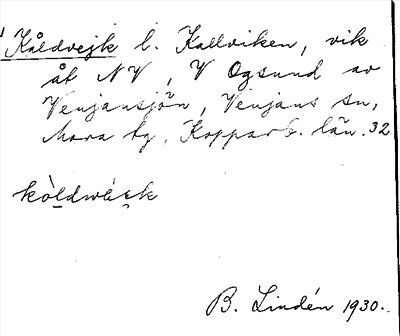 Kåldvejk l. Kallviken, vik
åt NV, V Ogsund av
Venjansjön, Venjans sn,
Mora tg, Kopparb. län. 32
kòldwèı̨k
B. Lindén 1930.